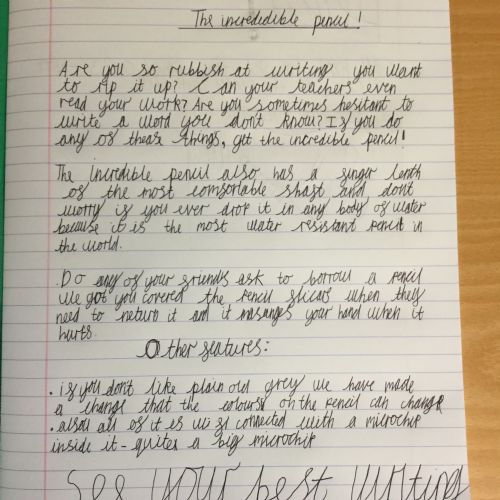 The incredidible pencil!
Are you so rubbish at writing you want
to rip it up? Can your teachers even
read your work? Are you sometimes hesitant to
write a word you don't know? If you do
any of these things, get the incredible pencil!
The Incredible pencil also has a finger lenth
of the most comfortable shaft and dont
worry if you ever drop it in any body of water
because it is the most water resistant pencil in
the world.
Do any of your friends ask to borrow a pencil
we got you covered the pencil when they
need to return it and it your hand when it
hurts.
Other features:
• if you dont like plain old grey we have made
a change that the colours on the pencil can change
• also all of it is connected with a microchip
inside it - quite a big microchip
See your best writing